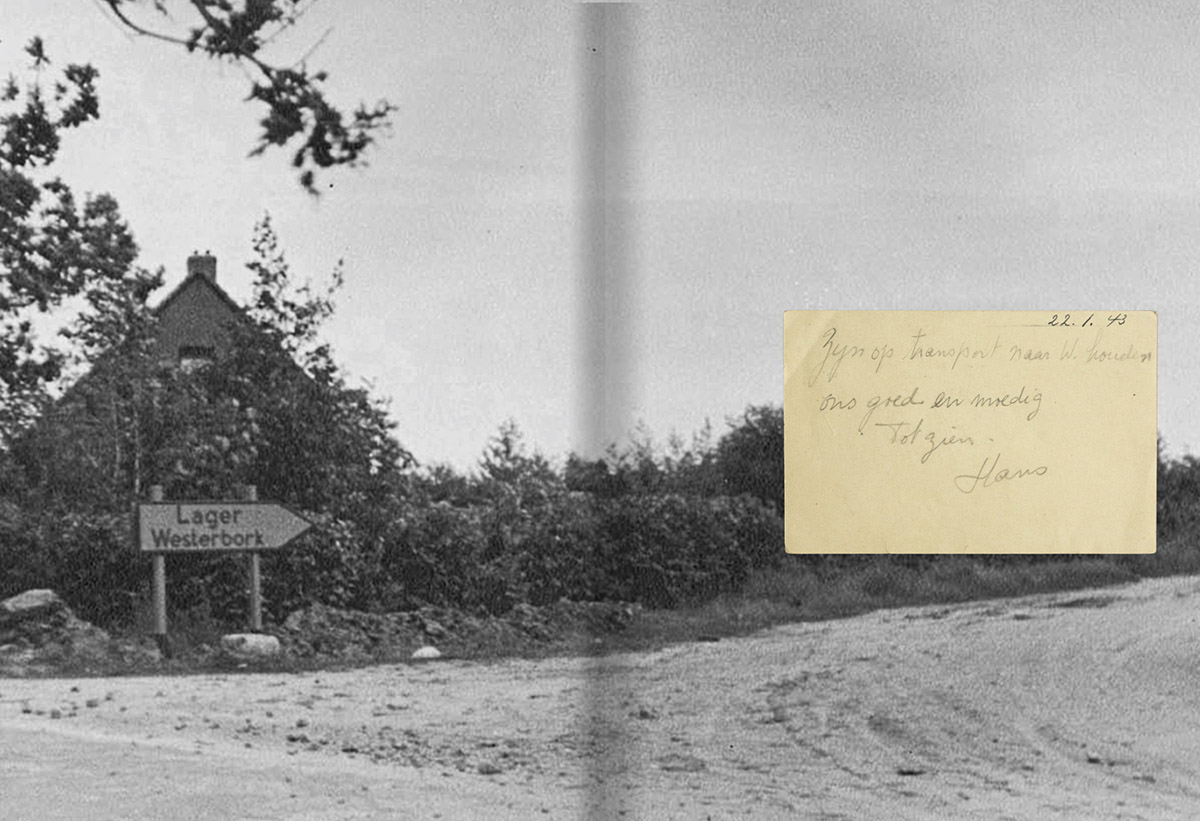 Lager
Westerbork
22. 1. 43
Zijn op transport naar W. houden
ons goed en moedig.
Tot zien.
Hans